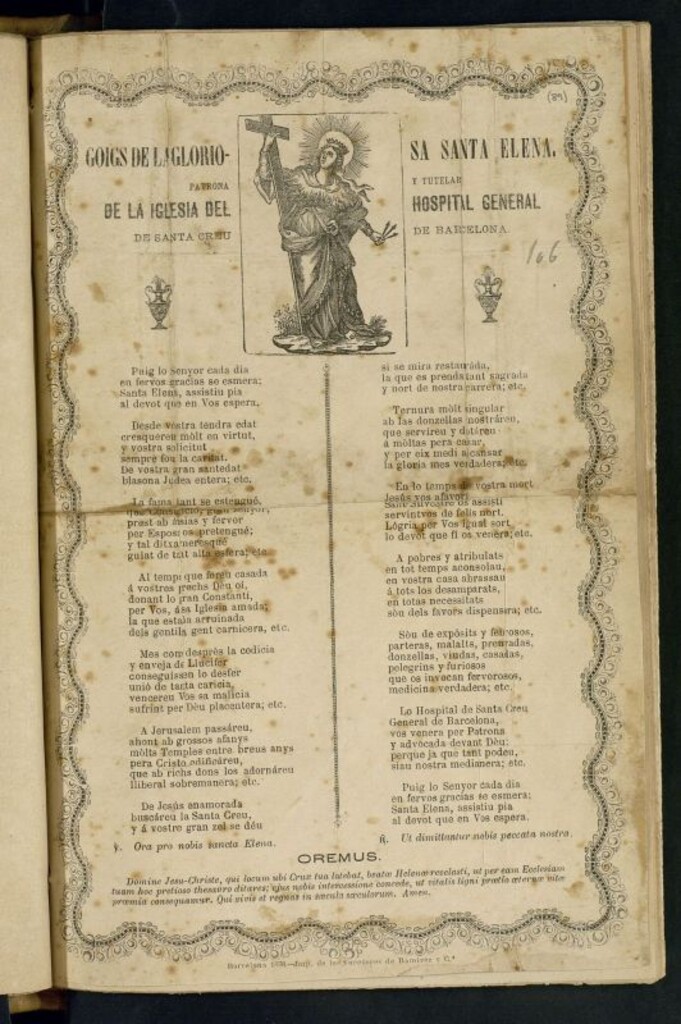 (89)
GOIGS DE LA GLORIO-
SA SANTA ELENA.
PATRONA
Y TUTELAR
DE LA IGLESIA DEL
HOSPITAL GENERAL
DE SANTA CREU
DE BARCELONA.
106
Puig lo Senyor cada dia
en fervos gracias se esmera;
Santa Elena, assistiu pia
al devot que en Vos espera.
Desde vostra tendra edat
cresquereu mòlt en virtut,
y vostra solicitut
sempre fou la caritat.
De vostra gran santedat
blasona Judea entera; etc.
La fama tant se estengué,
que
prest ab ánsias y fervor
per Espos os pretengué;
y tal ditxa meresqué
guiat de tait alta esfera; etc.
Al temps que foreu casada
á vostres prechs Dèu oí,
donant lo gran Constantí,
per Vos, ása Iglesia amada;
la que estaba arruinada
dels gentils gent carnicera, etc.
Mes com després la codicia
y enveja de Llucifer
conseguissen lo desfer
unió de tanta caricia,
vencereu Vos sa malicia
sufrint per Dèu placentera; etc.
A Jerusalem passáreu,
ahont ab grossos afanys
mòlts Temples entre breus anys
pera Cristo edificáreu,
que ab richs dons los adornáreu
lliberal sobremanera; etc.
De Jesús enamorada
buscáreu la Santa Creu,
y á vostre gran zel se déu
si se mira restaurada,
la que es prenda tant sagrada
y nort de nostra carrera; etc.
Ternura mòlt singular
ab las donzellas mostráreu,
que servireu y dotáreu
á mòltas pera casar,
y per eix medi alcansar
la gloria mes verdadera; etc.
En lo temps de vostra mort
Jesús vos afavorí
Sant Silvestre os assistí
servintvos de felis nort.
Lógria per Vos igual sort
lo devot que fi os venera; etc.
A pobres y atribulats
en tot temps aconsolau,
en vostra casa abrassau
á tots los desamparats,
en totas necessitats
sòu dels favors dispensera; etc.
Sòu de expósits y febrosos,
parteras, malalts, prenyadas,
donzellas, viudas, casadas,
pelegrins y furiosos
que os invocan fervorosos,
medicina verdadera; etc.
Lo Hospital de Santa Creu
General de Barcelona,
vos venera per Patrona
y advocada devant Dèu:
perque ja que tant podeu,
siau nostra medianera; etc.
Puig lo Senyor cada dia
en fervos gracias se esmera;
Santa Elena, assistiu pia
al devot que en Vos espera.
℣. Ora pro nobis sancta Elena.
℟. Ut dimittantur nobis peccata nostra.
OREMUS.
Domine Jesu-Christe, qui locum ubi Crux tua latebat, beatæ Helenæ revelasti, ut per eam Ecclesiam
tuam hoc pretioso thesauro ditares; ejus nobis intercessione concede, ut vitalis ligni prætio æternæ vitæ
præmia consequamur. Qui vivis et regnas in sæcula sæculorum. Amen.
Barcelona de los Herederos de Ramirez y C.ª